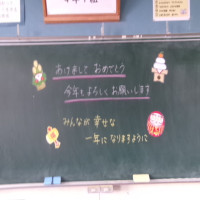 あけまして おめでとう
今年もよろしくお願いします
みんなが 幸せな
一年に なりますように